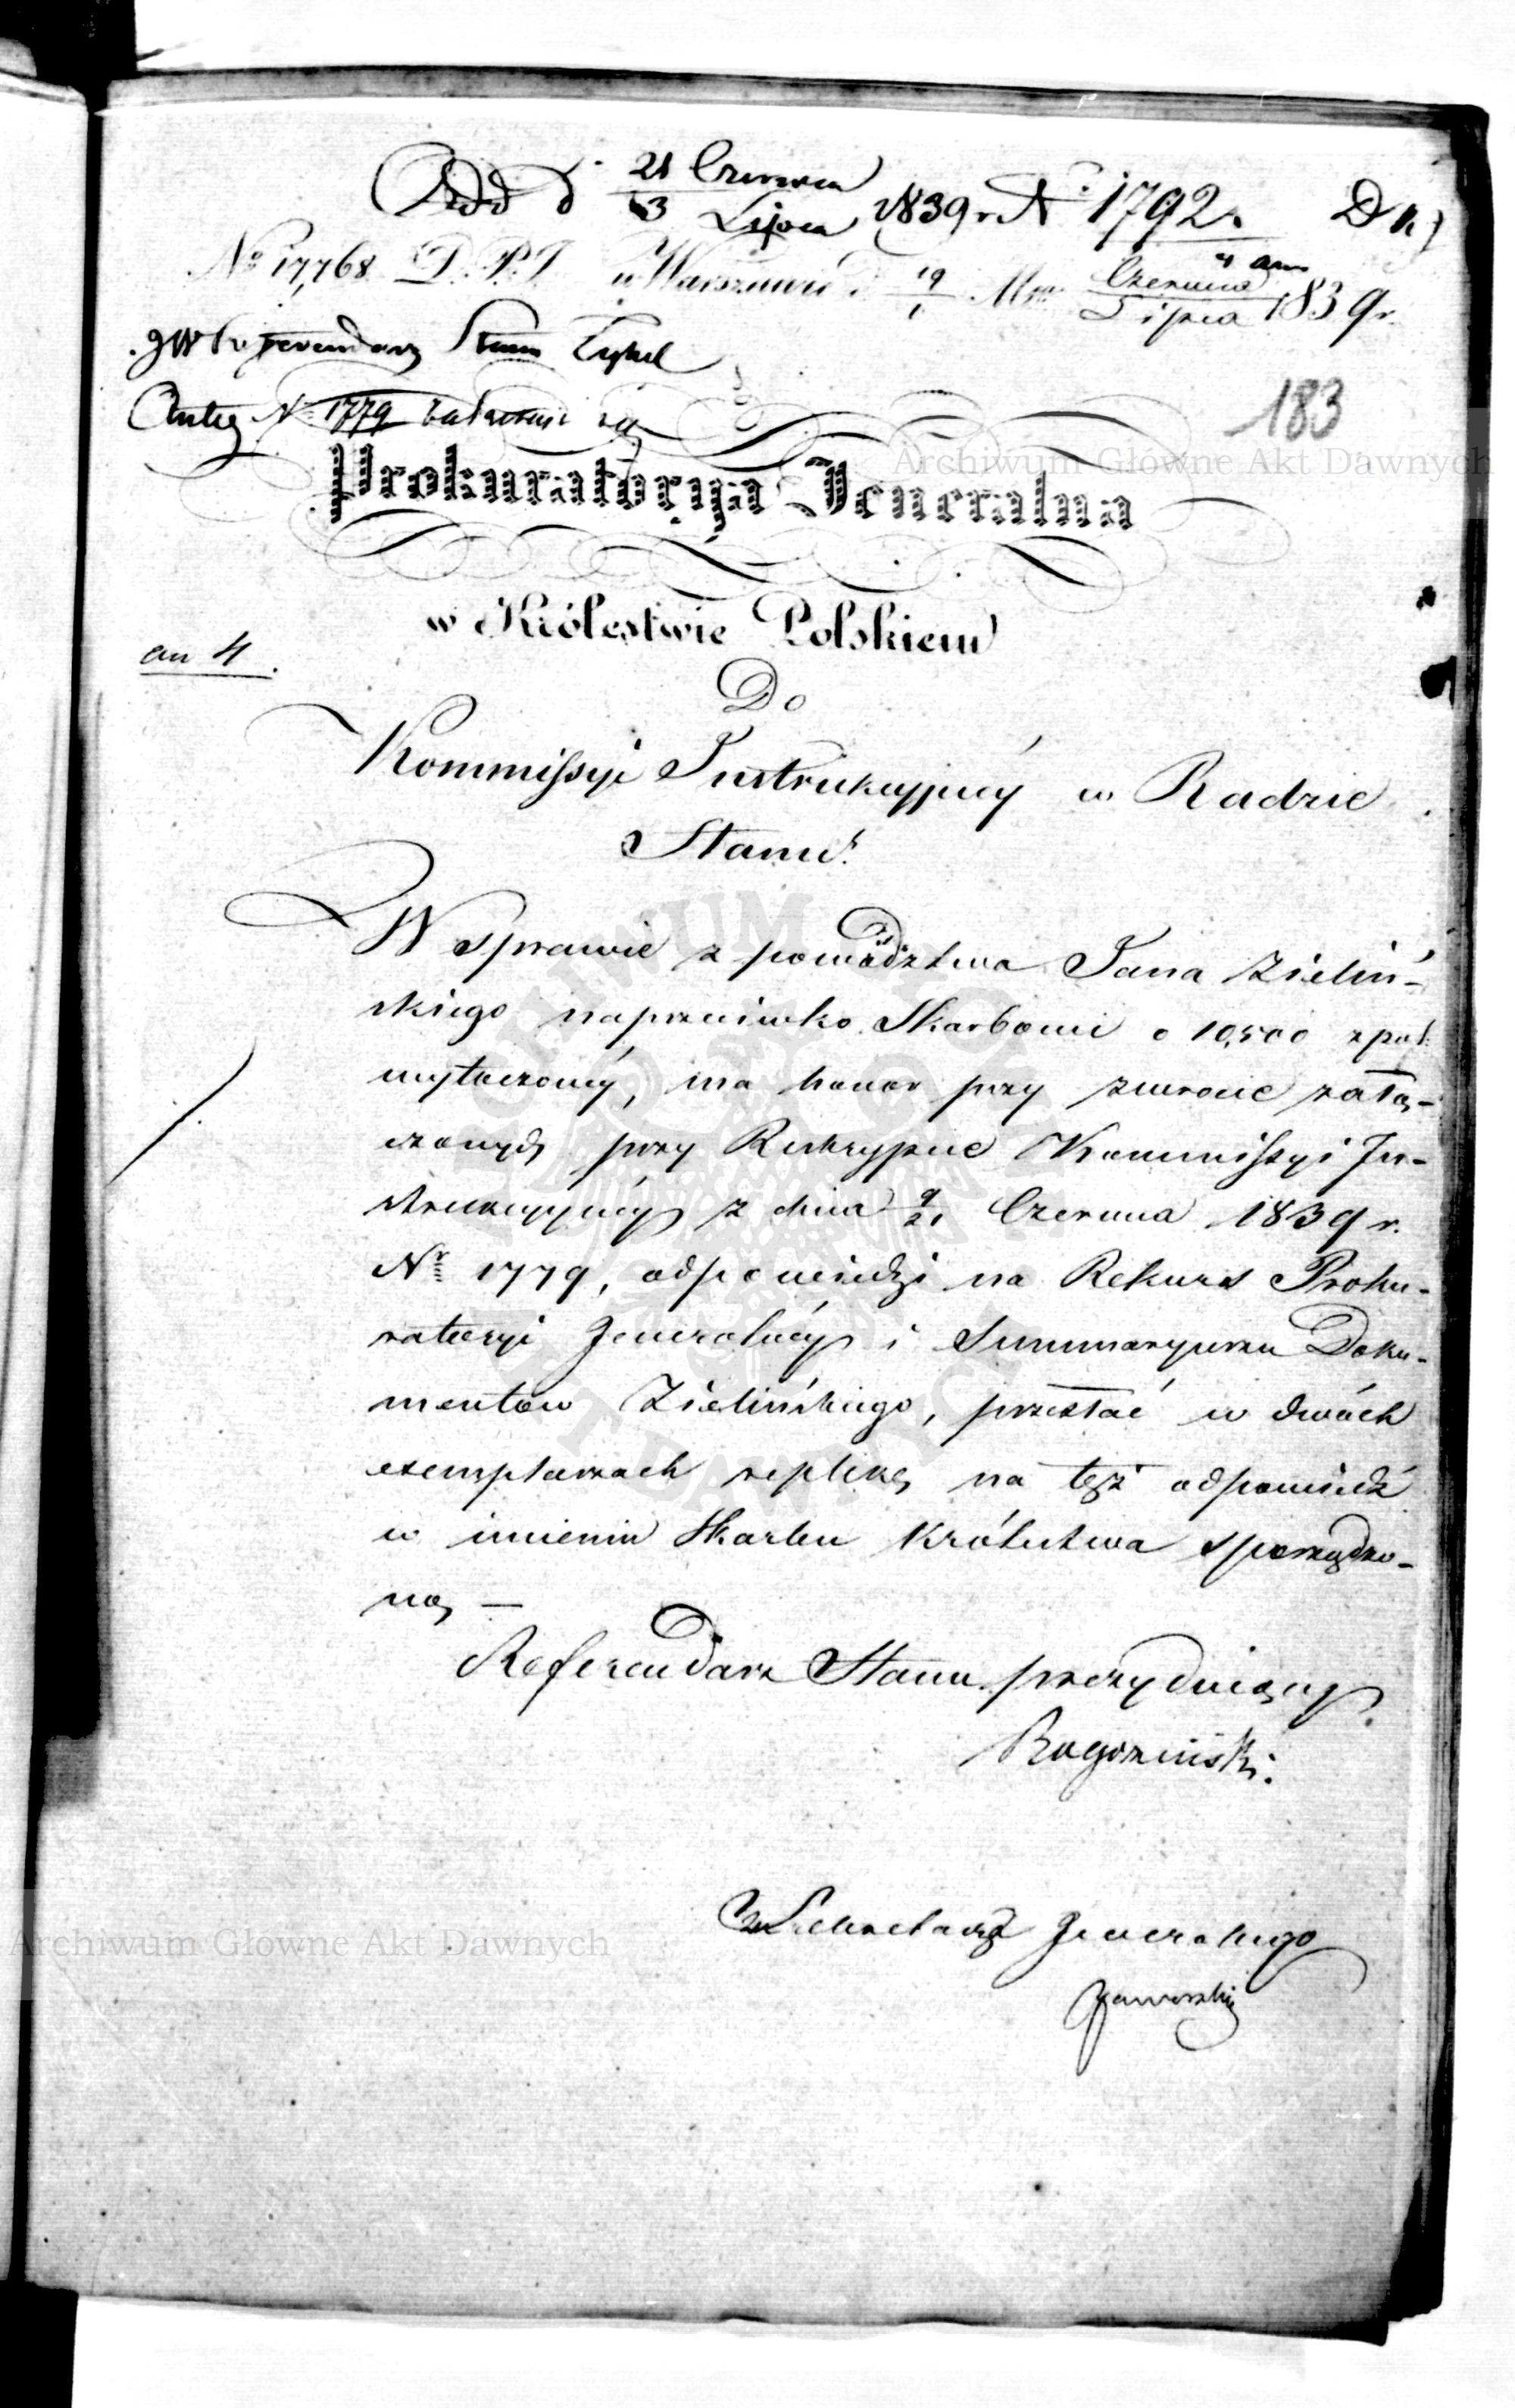 Odd d 21 Czerwca 1839 r. Nº 1792. Dn.)
3 Lipca
Nº 17,768 D. P. J. w Warszawie d. 19 Mca Czerwca 1839 r.
1 Lipca
JW Referendarz Stanu
Antea Nº 1779
183
Archiwum Główne Akt Dawnych
Prokuratorya Jeneralna
w Królestwie Polskiem
an 4.
Do
Kommissyi Instrukcyjnéy w Radzie
Stanu.
W sprawie z powództwa Jana Zieliń-
skiego naprzeciwko Skarbowi o 10,500 zpol
wytoczonéy, ma honor przy zwrocie załą-
czonych przy Reskrypcie Kommissyi In-
strukcyjnéy z dnia 9/21 Czerwca 1839 r.
Nr 1779, odpowiedzi na Rekurs Proku-
ratoryi Jeneralnéy i Summaryusza Doku-
mentów Zielińskiego, przesłać w dwóch
exemplarzach replikę na tęż odpowiedź
w imieniu Skarbu Królestwa sporządzo-
ną —
Referendarz Stanu prezydujący.
Rogoziński.
Archiwum Główne Akt Dawnych
Sekretarza Jeneralnego
Jaworski